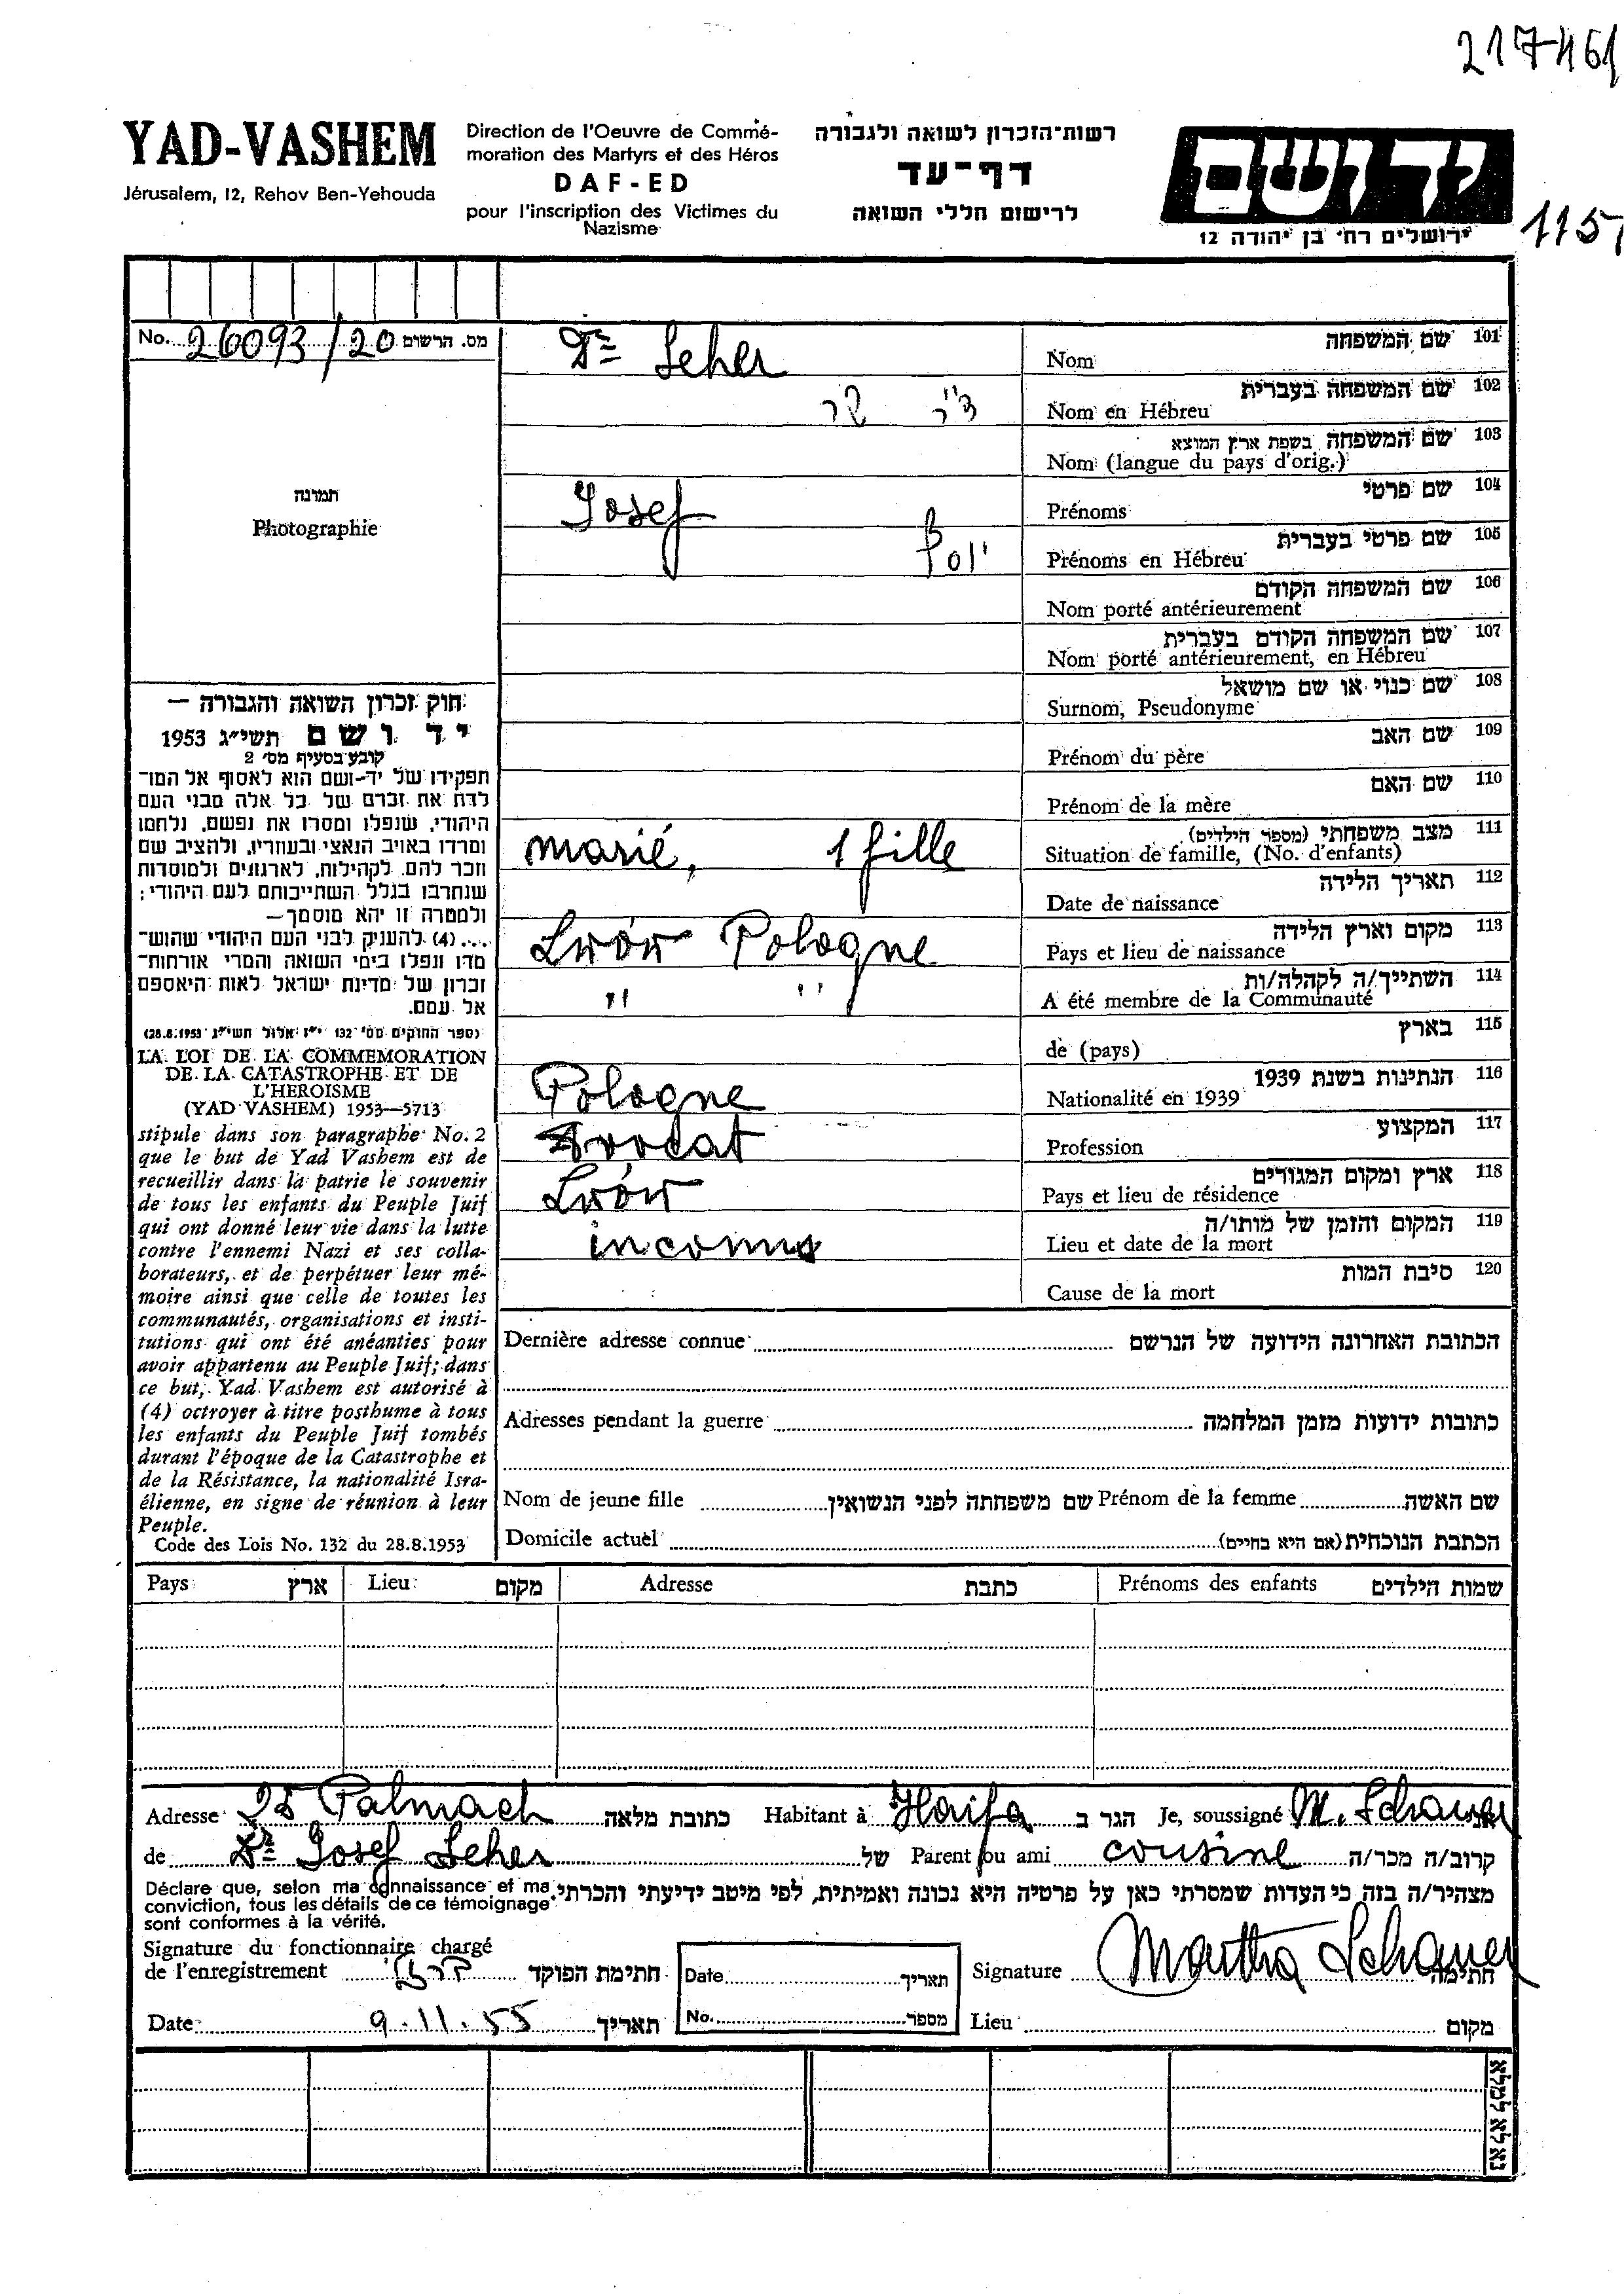 217461
YAD-VASHEM
Jérusalem, 12, Rehov Ben-Yehouda
Direction de l'Oeuvre de Commé-
moration des Martyrs et des Héros
DAF-ED
pour l'inscription des Victimes du
Nazisme
רשות־הזכרון לשואה ולגבורה
דף־עד
לרישום חללי השואה
יד ושם
ירושלים רח' בן יהודה 12
1157
No. 26093/20 מס. הרשום
תמונה
Photographie
חוק זכרון השואה והגבורה —
יד ושם תשי״ג 1953
קובע בסעיף מס' 2
תפקידו של יד-ושם הוא לאסוף אל המו־
לדת את זכרם של כל אלה מבני העם
היהודי, שנפלו ומסרו את נפשם, נלחמו
ומרדו באויב הנאצי ובעוזריו, ולהציב שם
וזכר להם, לקהילות, לארגונים ולמוסדות
שנחרבו בגלל השתייכותם לעם היהודי;
ולמטרה זו יהא מוסמך—
....(4) להעניק לבני העם היהודי שהוש־
מדו ונפלו בימי השואה והמרי אזרחות־
זכרון של מדינת ישראל לאות היאספם
אל עמם.
(ספר החוקים מס' 132 י״ז אלול תשי״ג 28.8.1953)
LA LOI DE LA COMMEMORATION
DE LA CATASTROPHE ET DE
L'HEROISME
(YAD VASHEM) 1953—5713
stipule dans son paragraphe No. 2
que le but de Yad Vashem est de
recueillir dans la patrie le souvenir
de tous les enfants du Peuple Juif
qui ont donné leur vie dans la lutte
contre l'ennemi Nazi et ses colla-
borateurs, et de perpétuer leur mé-
moire ainsi que celle de toutes les
communautés, organisations et insti-
tutions qui ont été anéanties pour
avoir appartenu au Peuple Juif; dans
ce but, Yad Vashem est autorisé à
(4) octroyer à titre posthume à tous
les enfants du Peuple Juif tombés
durant l'époque de la Catastrophe et
de la Résistance, la nationalité Isra-
élienne, en signe de réunion à leur
Peuple.
Code des Lois No. 132 du 28.8.1953
101 שם המשפחה
Nom
Dr Seher
102 שם המשפחה בעברית
Nom en Hébreu
ד״ר שר
103 שם המשפחה בשפת ארץ המוצא
Nom (langue du pays d'orig.)
104 שם פרטי
Prénoms
Josef
105 שם פרטי בעברית
Prénoms en Hébreu
יוסף
106 שם המשפחה הקודם
Nom porté antérieurement
107 שם המשפחה הקודם בעברית
Nom porté antérieurement, en Hébreu
108 שם כנוי או שם מושאל
Surnom, Pseudonyme
109 שם האב
Prénom du père
110 שם האם
Prénom de la mère
111 מצב משפחתי (מספר הילדים)
Situation de famille, (No. d'enfants)
marié, 1 fille
112 תאריך הלידה
Date de naissance
113 מקום וארץ הלידה
Pays et lieu de naissance
Lwów Pologne
114 השתייך/ה לקהלה/ות
A été membre de la Communauté
" "
115 בארץ
de (pays)
116 הנתינות בשנת 1939
Nationalité en 1939
Pologne
117 המקצוע
Profession
Avocat
118 ארץ ומקום המגורים
Pays et lieu de résidence
Lwów
119 המקום והזמן של מותו/ה
Lieu et date de la mort
inconnu
120 סיבת המות
Cause de la mort
Dernière adresse connue הכתובת האחרונה הידועה של הנרשם
Adresses pendant la guerre כתובות ידועות מזמן המלחמה
Nom de jeune fille שם משפחתה לפני הנשואין Prénom de la femme שם האשה
Domicile actuel הכתבת הנוכחית (אם היא בחיים)
Pays ארץ Lieu מקום Adresse כתבת Prénoms des enfants שמות הילדים
Adresse 25 Palmach כתובת מלאה Habitant à Haifa הגר ב Je, soussigné M. Schauer אני
de Dr Josef Seher של Parent ou ami cousine קרוב/ה מכר/ה
Déclare que, selon ma connaissance et ma
conviction, tous les détails de ce témoignage
sont conformes à la vérité.
מצהיר/ה בזה כי העדות שמסרתי כאן על פרטיה היא נכונה ואמיתית, לפי מיטב ידיעתי והכרתי.
Signature du fonctionnaire chargé
de l'enregistrement חתימת הפוקד
Date תאריך
Signature Martha Schauer חתימה
Date 9.11.55 תאריך
No. מספר
Lieu מקום
נא לא למלא